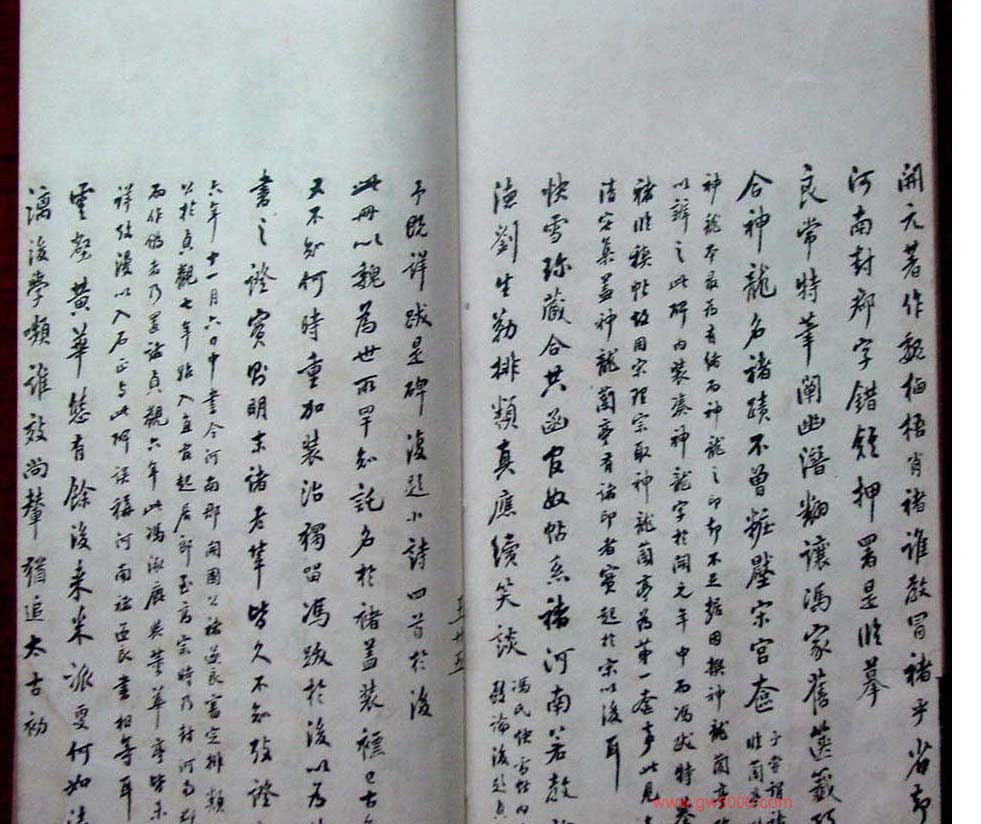 開元著作魏栖梧肖褚誰教冒褚乎省郎
河南封郡字錯 押署是臨摹
良常特筆闡幽潛 讓馮家舊篋籤
合神龍名褚蹟不曾妝壁宋宮奩
神龍本最為有緒而神龍之印却不足據因撰神龍蘭亭
以辨之此碑內裝 神龍字於開元年中而馮跋特
褚臨禊帖故因宋理宗取神龍蘭亭為第一奩事此見
清容集蓋神龍蘭亭有諸印者實起於宋以後耳
快雪珍藏合共函官奴帖系褚河南若教
劉生勒排類真應續笑談
馮氏快雪帖內
疑論後題貞
予既詳跋是碑復題小詩四首於後
此冊以魏為世所罕知託名於褚蓋裝褾已古
又不知何時重加裝治獨留馮跋於後以為
書之證實則明末諸老輩皆久不知攷證
六年十一月六日中書令河南郡開國公褚遂良書定排類
於貞觀七年始入直官起居郎至高宗時乃封河南郡
而作偽者乃署諸貞觀六年此馮涿鹿與董華亭皆未
詳攷漫以入石正與此碑誤稱河南褚遂良書相等耳
黃華態有餘後來米派更何如
漓後學嚬誰效尚輦猶追太古初